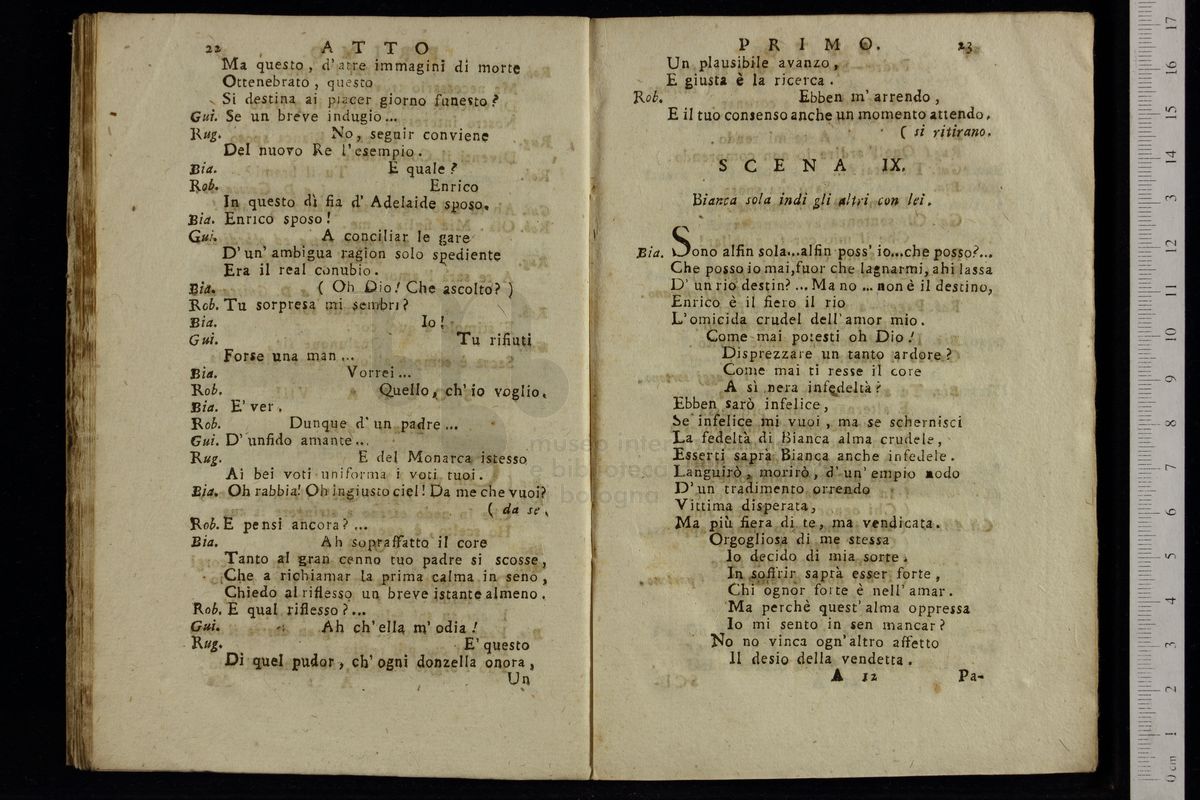 22 ATTO
Ma questo, d'atre immagini di morte
Ottenebrato, questo
Si destina ai piacer giorno funesto?
Gui. Se un breve indugio...
Rug. No, seguir conviene
Del nuovo Re l'esempio.
Bia. E quale?
Rob. Enrico
In questo dì fia d'Adelaide sposo.
Bia. Enrico sposo!
Gui. A conciliar le gare
D'un'ambigua ragion solo spediente
Era il real conubio.
Bia. (Oh Dio! Che ascolto?)
Rob. Tu sorpresa mi sembri?
Bia. Io!
Gui. Tu rifiuti
Forse una man...
Bia. Vorrei...
Rob. Quello, ch'io voglio.
Bia. E' ver.
Rob. Dunque d'un padre...
Gui. D'unfido amante...
Rug. E del Monarca istesso
Ai bei voti uniforma i voti tuoi.
Bia. Oh rabbia! Oh ingiusto ciel! Da me che vuoi?
( da se.
Rob. E pensi ancora?...
Bia. Ah sopraffatto il core
Tanto al gran cenno tuo padre si scosse,
Che a richiamar la prima calma in seno,
Chiedo al riflesso un breve istante almeno.
Rob. E qual riflesso?...
Gui. Ah ch'ella m'odia!
Rug. E' questo
Di quel pudor, ch'ogni donzella onora,
Un
PRIMO. 23
Un plausibile avanzo,
E giusta è la ricerca.
Rob. Ebben m'arrendo,
E il tuo consenso anche un momento attendo.
( si ritirano.
SCENA IX.
Bianca sola indi gli altri con lei.
Bia. Sono alfin sola...alfin poss'io...che posso?...
Che posso io mai, fuor che lagnarmi, ahi lassa
D'un rio destin?... Ma no... non è il destino,
Enrico è il fiero il rio
L'omicida crudel dell'amor mio.
Come mai potesti oh Dio!
Disprezzare un tanto ardore?
Come mai ti resse il core
A sì nera infedeltà?
Ebben sarò infelice,
Se infelice mi vuoi, ma se schernisci
La fedeltà di Bianca alma crudele,
Esserti saprà Bianca anche infedele.
Languirò, morirò, d'un'empio nodo
D'un tradimento orrendo
Vittima disperata,
Ma più fiera di te, ma vendicata.
Orgogliosa di me stessa
Io decido di mia sorte.
In soffrir saprà esser forte,
Chi ognor forte è nell'amar.
Ma perchè quest'alma oppressa
Io mi sento in sen mancar?
No no vinca ogn'altro affetto
Il desio della vendetta.
A 12 Pa-